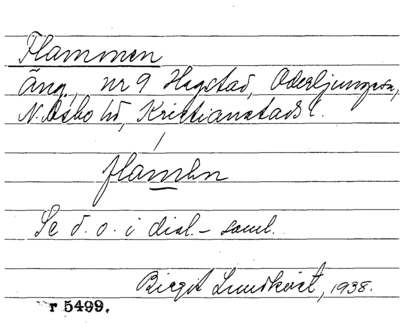 Flammen
Äng., nr 9 Hagstad, Oderljunga sn,
N. Åsbo hd, Kristianstads l.
flámən
Se d. o. i dial.-saml.
Birgit Lundkvist, 1938.
r 5499.